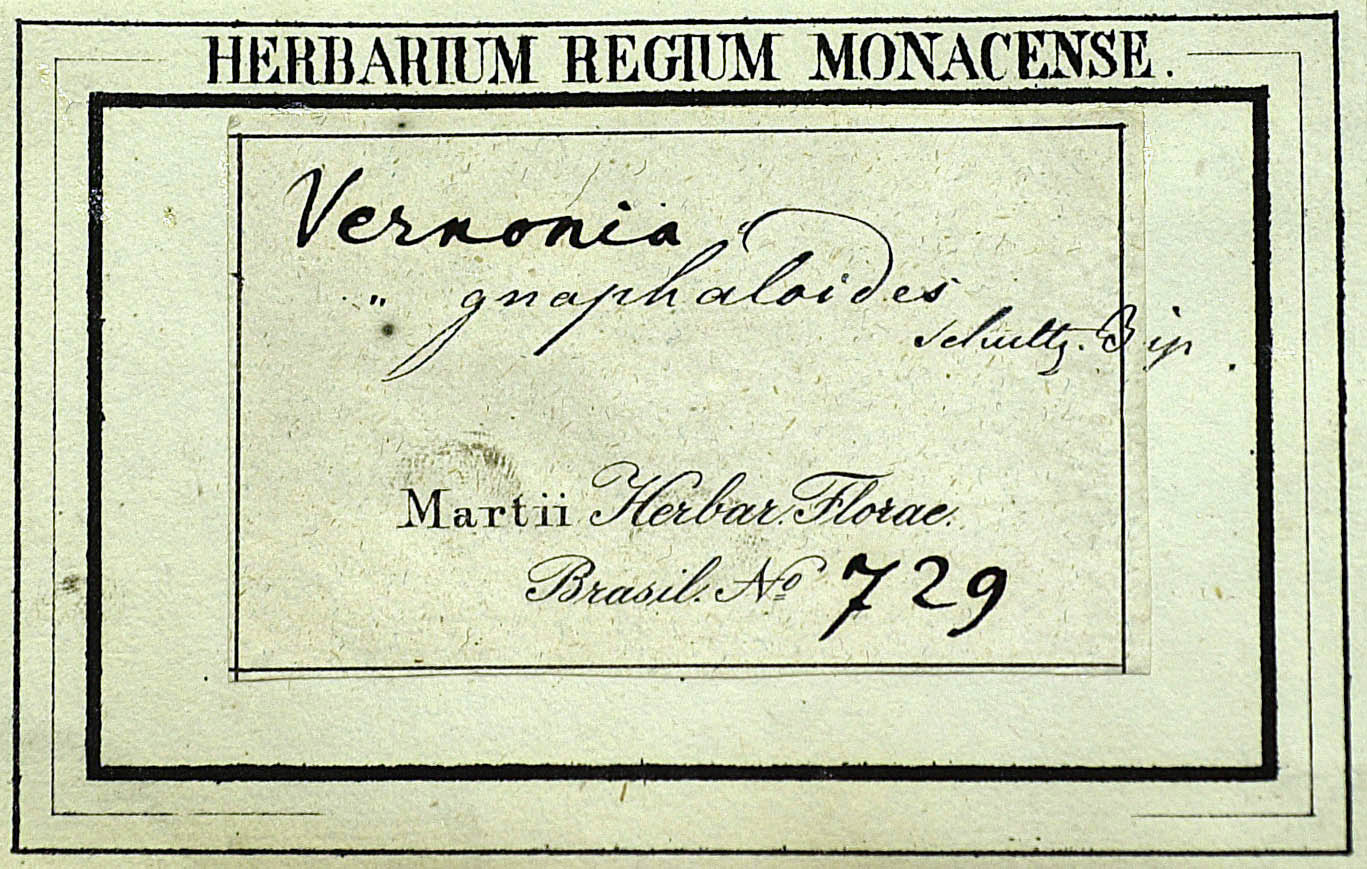 HERBARIUM REGIUM MONACENSE.
Vernonia
" gnaphaloides
Schultz. Bip
Martii Herbar. Florae.
Brasil. Nº 729